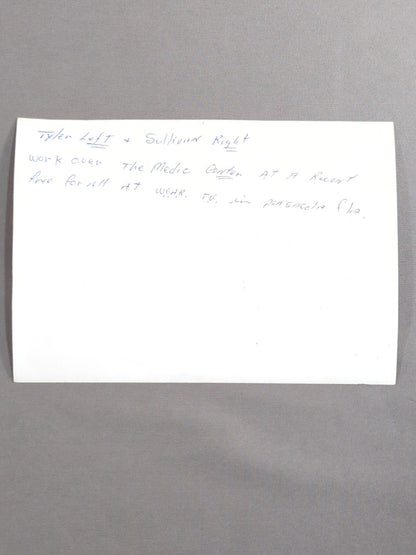 Tyler Left + Sullivan Right
work over The Medic Center AT A Recent
free for all AT WEAR. TV. in pensacola fla.